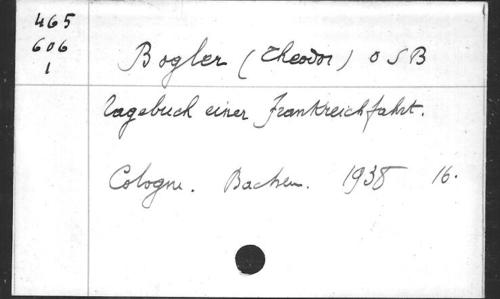 465
606
1
Bogler (Theodor) O S B
Tagebuch einer Frankreichfahrt.
Cologne. Bachem. 1938 16.